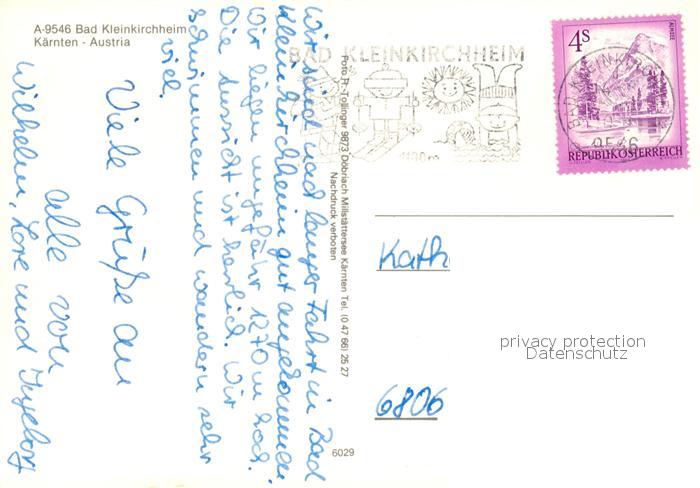 A-9546 Bad Kleinkirchheim
Kärnten - Austria
Wir sind nach langer Fahrt in Bad
Kleinkirchheim gut angekommen.
Wir liegen ungefähr 1270 m hoch.
Die Aussicht ist herrlich. Wir
schwimmen und wandern sehr
viel.
Viele Grüße an
alle von
Wilhelm, Lore und Ingeborg
Foto R. Tollinger 9873 Döbriach Millstättersee Kärnten Tel. (0 47 66) 25 27
Nachdruck verboten
6029
BAD KLEINKIRCHHEIM
1100 m
4S
ALMSEE
REPUBLIK ÖSTERREICH
BAD KLEINKIRCHHEIM
9546
Kath
privacy protection
Datenschutz
6806